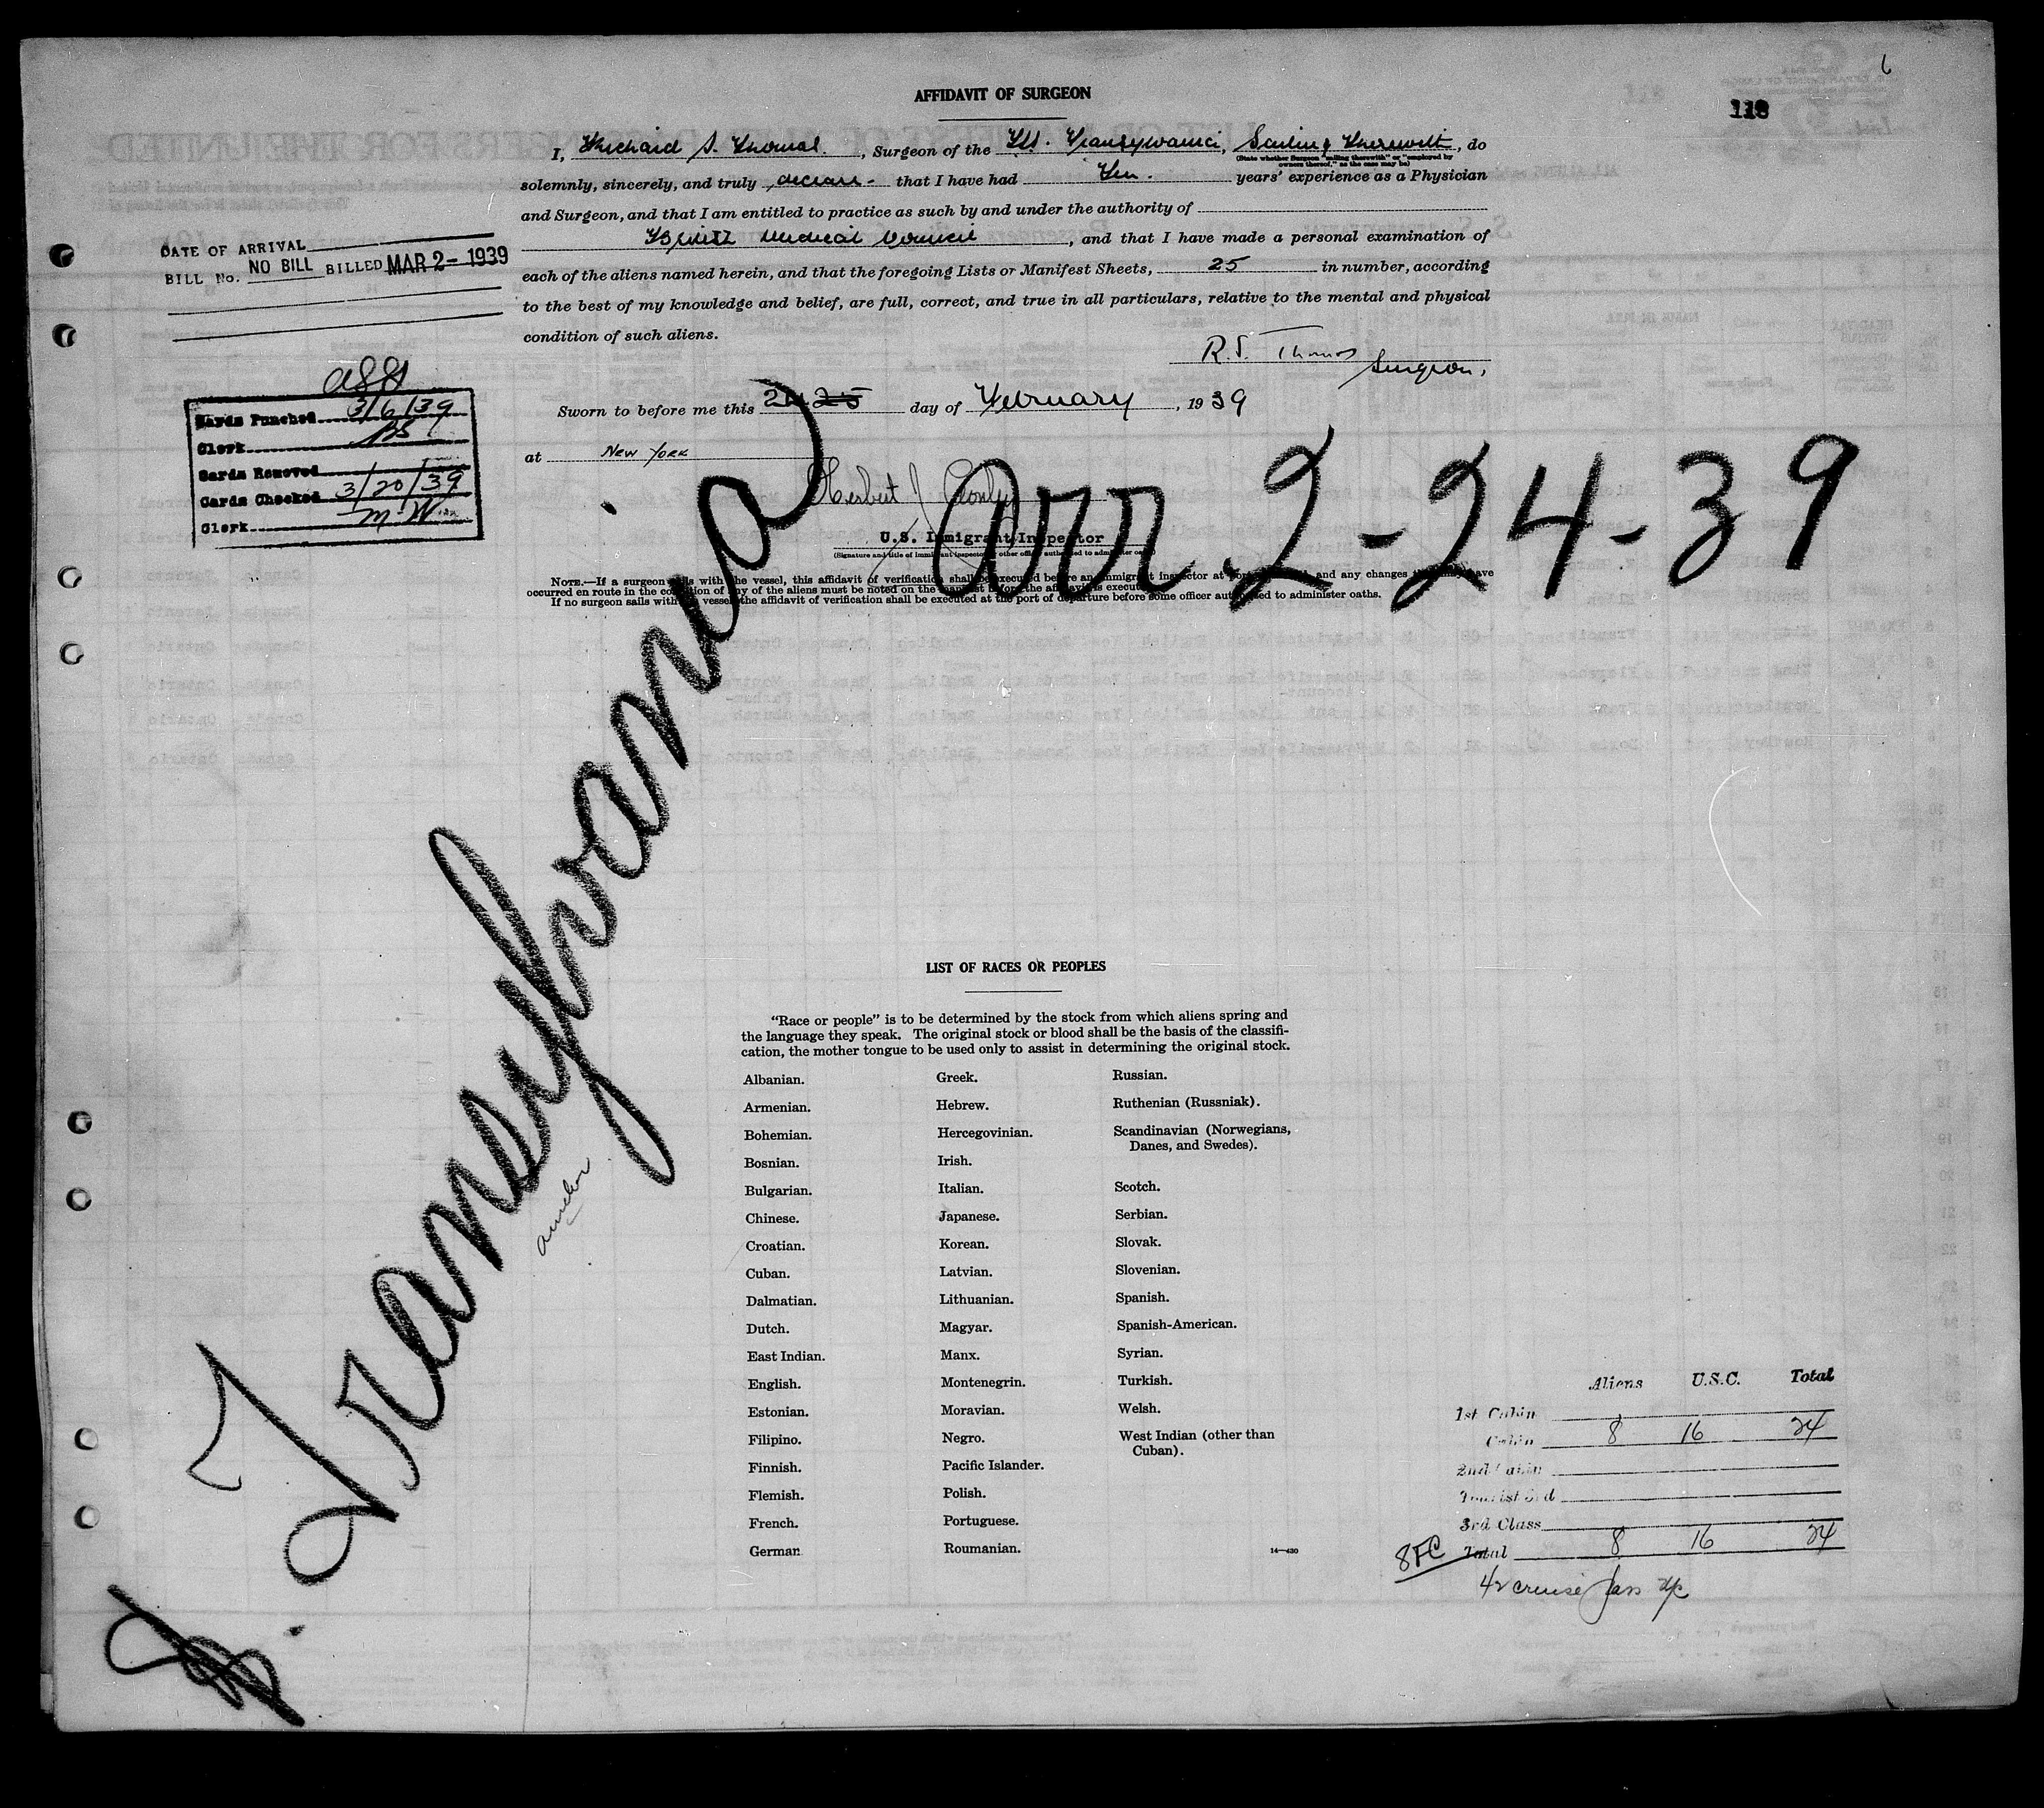 6
118
AFFIDAVIT OF SURGEON
I, Richard S. Thomas, Surgeon of the T.S.S. Transylvania, Sailing Therewith, do
(State whether Surgeon "sailing therewith" or "employed by owners thereof," as the case may be)
solemnly, sincerely, and truly declare that I have had Ten years' experience as a Physician
and Surgeon, and that I am entitled to practice as such by and under the authority of
British Medical Council, and that I have made a personal examination of
each of the aliens named herein, and that the foregoing Lists or Manifest Sheets, 25 in number, according
to the best of my knowledge and belief, are full, correct, and true in all particulars, relative to the mental and physical
condition of such aliens.
R.S. Thomas
Surgeon.
Sworn to before me this 24 25 day of February, 1939
at New York
Herbert J
U.S. Immigrant Inspector
(Signature and title of immigrant inspector or other officer authorized to administer oaths)
NOTE.—If a surgeon sails with the vessel, this affidavit of verification shall be executed before an immigrant inspector at port of arrival, and any changes that may have
occurred en route in the condition of any of the aliens must be noted on the manifest before the affidavit is executed.
If no surgeon sails with the vessel the affidavit of verification shall be executed at the port of departure before some officer authorized to administer oaths.
DATE OF ARRIVAL
BILL No. NO BILL BILLED MAR 2- 1939
Cards Punched 3/6/39
Clerk
Cards Removed
Cards Checked 3/20/39
Clerk M-W
Arr 2-24-39
S.S. Transylvania
anchor
LIST OF RACES OR PEOPLES
"Race or people" is to be determined by the stock from which aliens spring and
the language they speak. The original stock or blood shall be the basis of the classifi-
cation, the mother tongue to be used only to assist in determining the original stock.
Albanian.
Armenian.
Bohemian.
Bosnian.
Bulgarian.
Chinese.
Croatian.
Cuban.
Dalmatian.
Dutch.
East Indian.
English.
Estonian.
Filipino.
Finnish.
Flemish.
French.
German
Greek.
Hebrew.
Hercegovinian.
Irish.
Italian.
Japanese.
Korean.
Latvian.
Lithuanian.
Magyar.
Manx.
Montenegrin.
Moravian.
Negro.
Pacific Islander.
Polish.
Portuguese.
Roumanian.
Russian.
Ruthenian (Russniak).
Scandinavian (Norwegians,
Danes, and Swedes).
Scotch.
Serbian.
Slovak.
Slovenian.
Spanish.
Spanish-American.
Syrian.
Turkish.
Welsh.
West Indian (other than
Cuban).
14—430
Aliens U.S.C. Total
1st Cabin
Cabin 8 16 24
2nd Cabin
Tourist 3rd
3rd Class
8FC Total 8 16 24
42 cruise pass